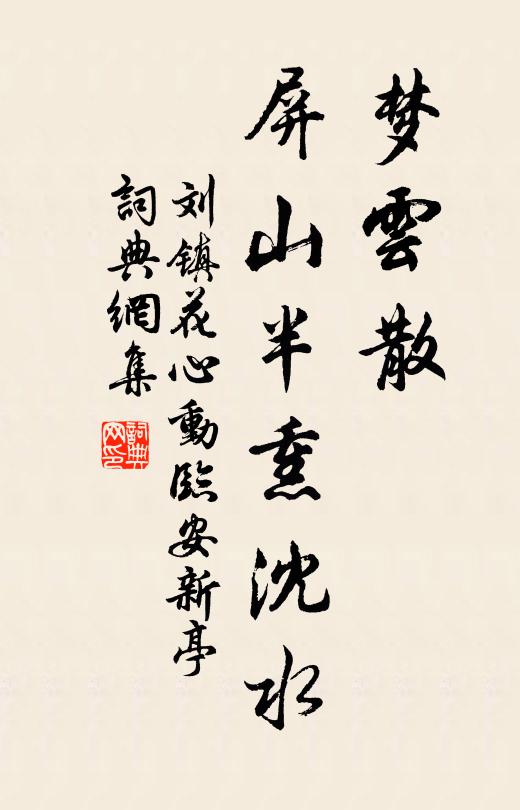 梦雲散
屏山半熏沈水
刘镇花心動臨安新亭
詞典網集
詞典网印